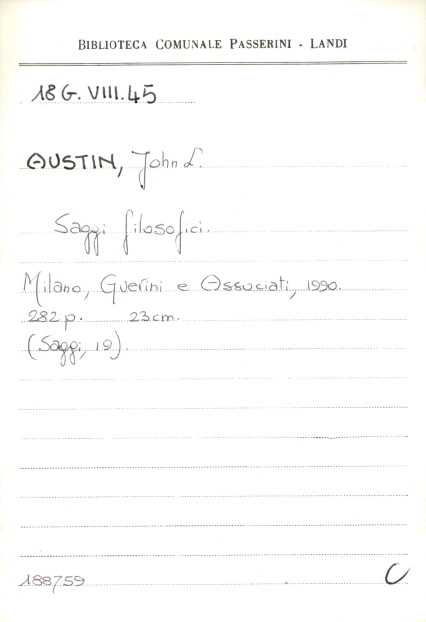 BIBLIOTECA COMUNALE PASSERINI - LANDI
18 G. VIII. 45
AUSTIN, John L.
Saggi filosofici.
Milano, Guerini e Associati, 1990.
282 p. 23 cm.
(Saggi, 19).
188759 C